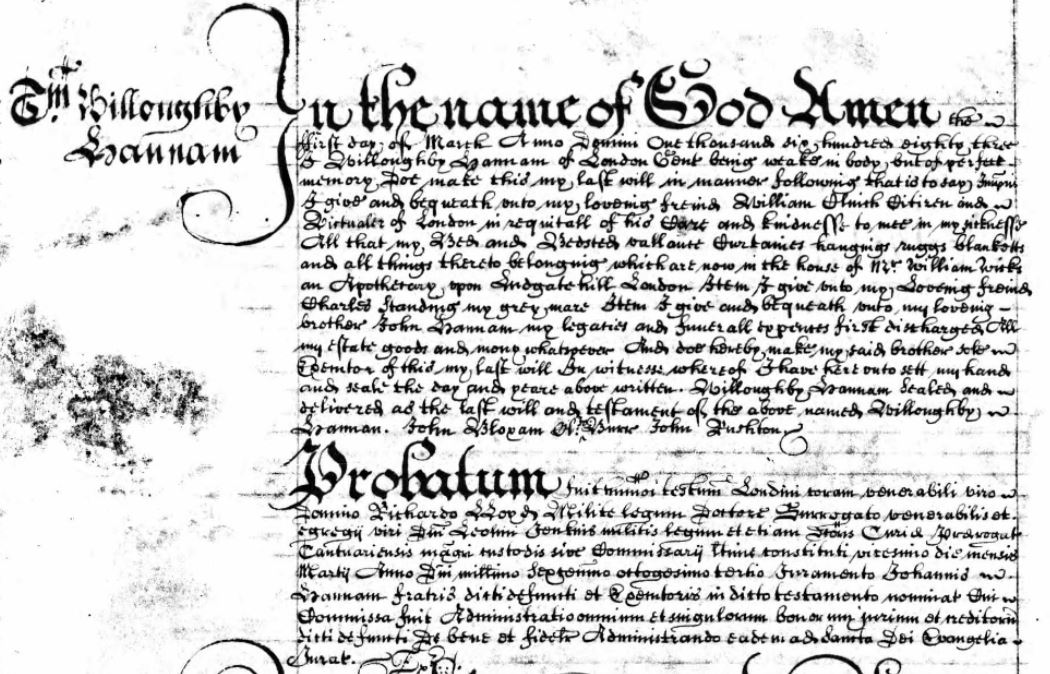 Tm Willoughby
Hannam
In the name of God Amen the
ffirst day of March Anno Domini One thousand six hundred eighty three
I Willoughby Hannam of London Gent being weake in body, but of perfect
memory Doe make this my last will in manner following that is to say
I give and bequeath unto my loveing freind William Citizen and
Victualer of London in requitall of his Care and kindnesse to mee in my sicknesse
All that my Bed and Bedsted vallante Curtaines hangings ruggs blanketts
and all things thereto belonging which are now in the house of Mr. William Wicks
an Apothecary upon Ludgate hill London Item I give unto my Loveing freind
Charles Standing my grey mare Item I give and bequeath unto my loveing
brother John Hannam my legaties and funerall expences first discharged All
my estate goods and mony whatsoever And doe hereby make my said brother sole
Executor of this my last will In witnesse whereof I have here unto sett my hand
and seale the day and yeare above written. Willoughby Hannam Sealed and
delivered as the last will and testament of the above named Willoughby
Hannan. John Bloxam Burr John Rushton
Probatum fuit testum Londini coram venerabili viro
Domino Richardo Lloyd Milite legum Doctore Surrogato venerabilis et
egregij viri Dni Leolini Jenkins militis legum et etiam Doris Curiae Prerogat
Cantuariensis magri custodis sive Commissarij ltime constituti vicesimo die mensis
Martij Anno Dni millimo Sexgenmo ottogesimo tertio Juramento Johannis
Hannam fratris dicti defuncti et Executoris in dicto testamento nominat Cui
Commissa fuit Administratio omnium et singulorum bonorum jurium et creditorum
dicti defuncti De bene et fidelr Administrando eadem ad sancta Dei Evangelia
Jurat.